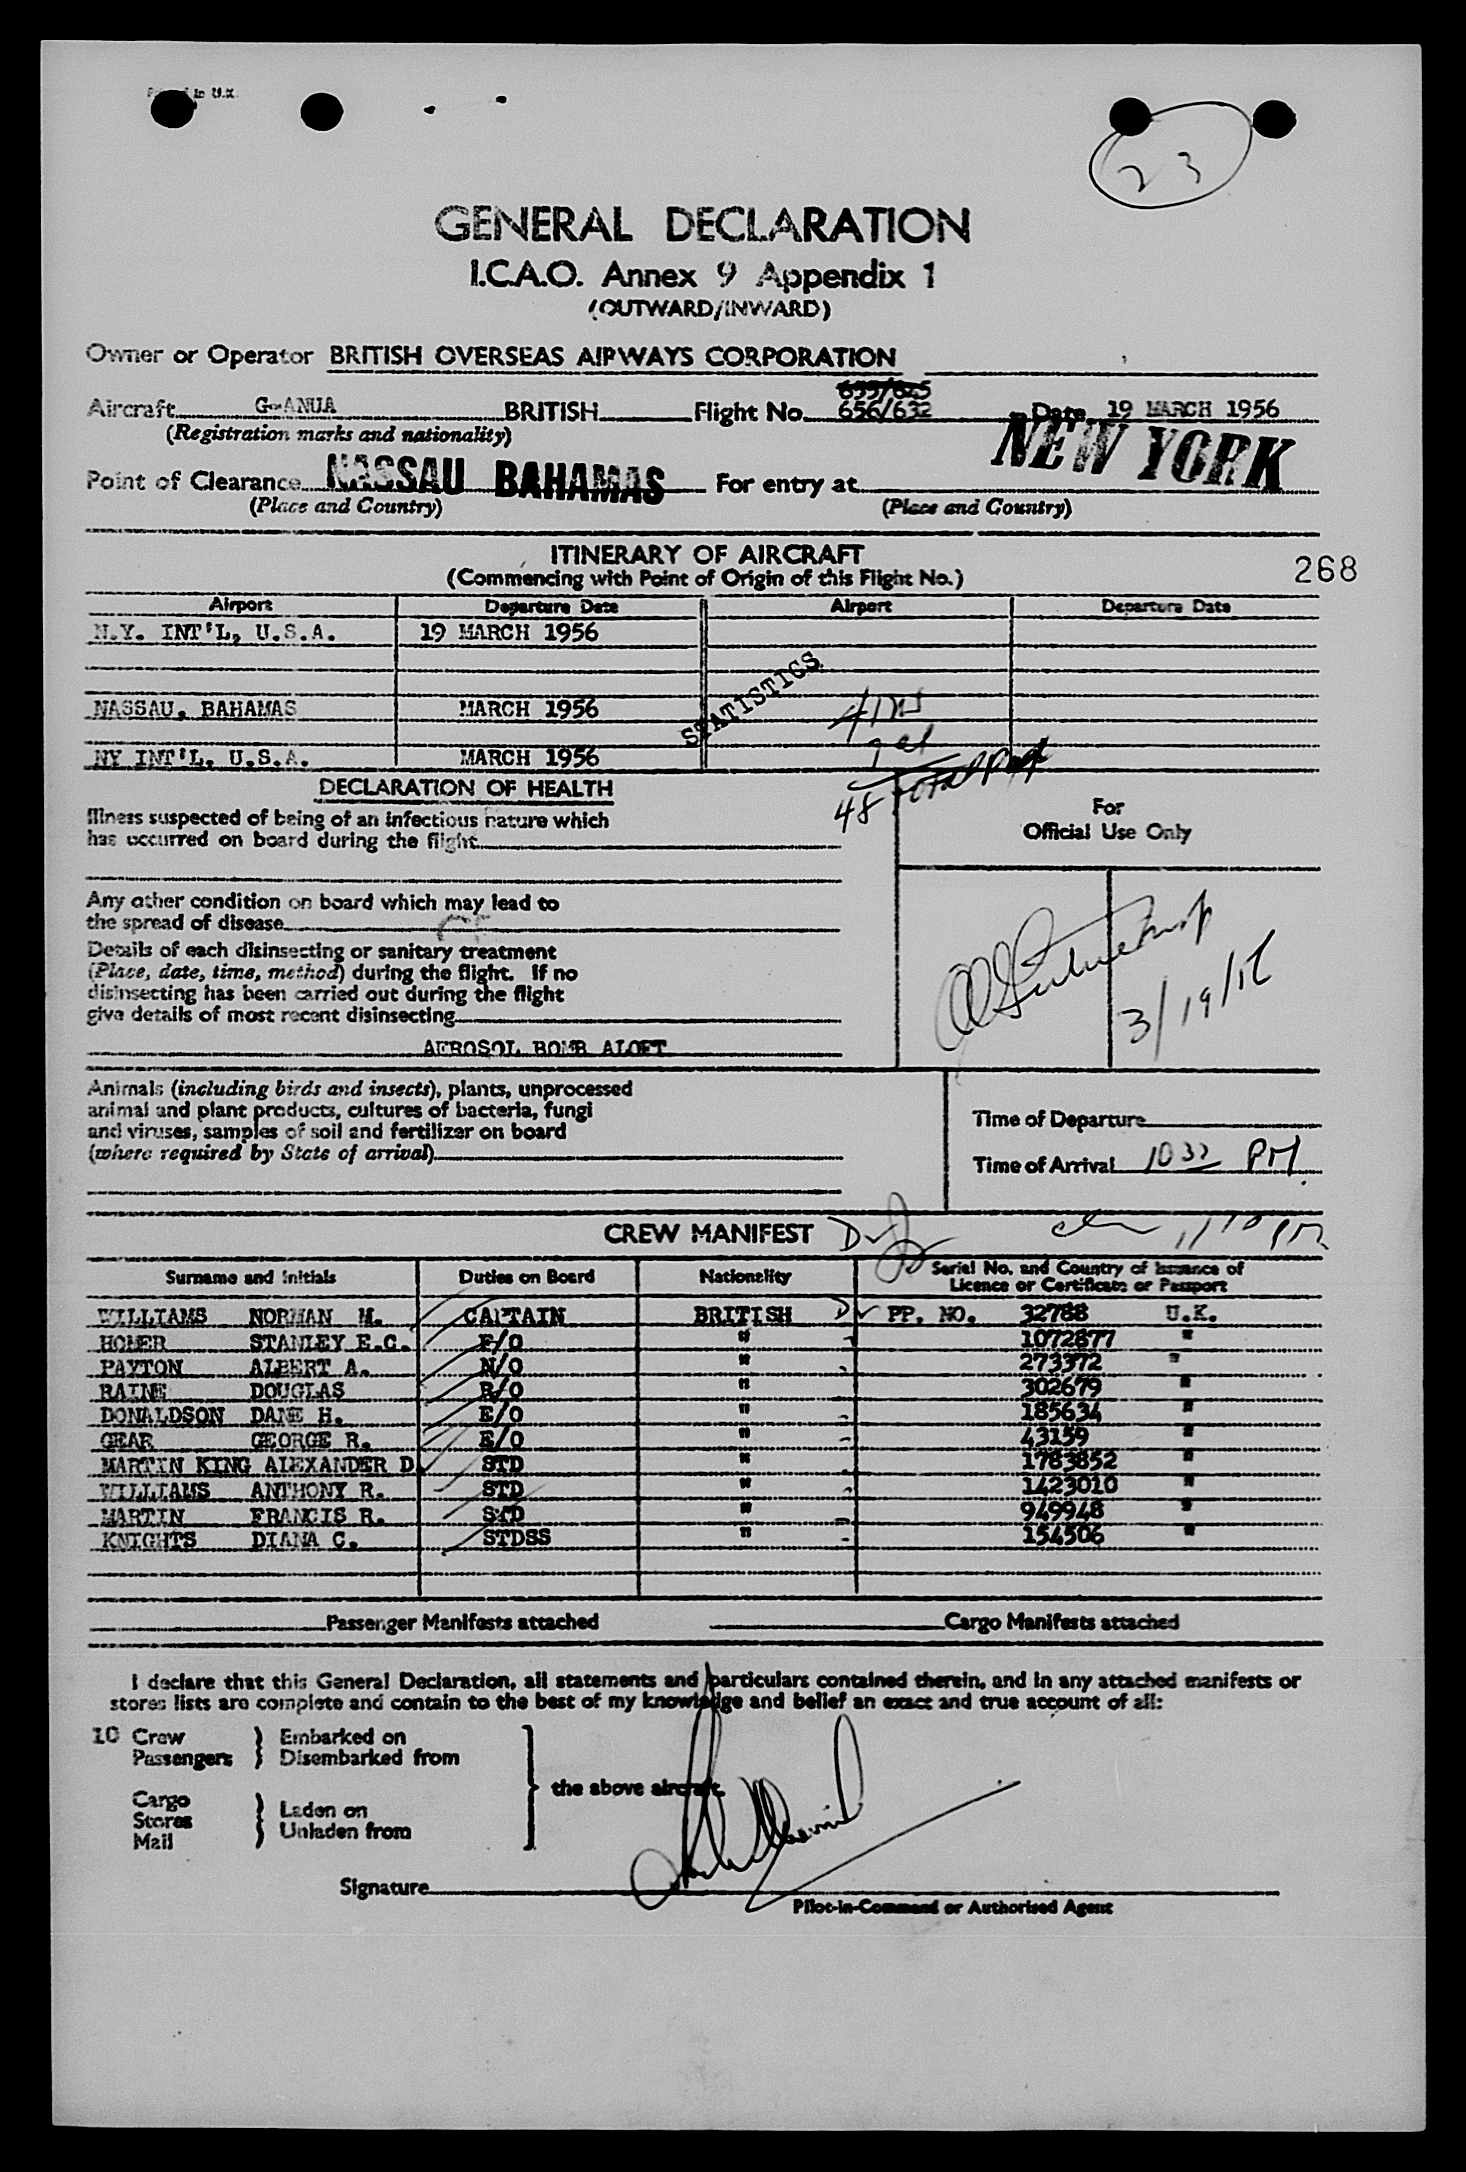 in U.K.
23
GENERAL DECLARATION
I.C.A.O. Annex 9 Appendix 1
(OUTWARD/INWARD)
Owner or Operator BRITISH OVERSEAS AIRWAYS CORPORATION
Aircraft G-ANUA BRITISH Flight No. 656/632 Date 19 MARCH 1956
(Registration marks and nationality)
Point of Clearance NASSAU BAHAMAS For entry at NEW YORK
(Place and Country) (Place and Country)
ITINERARY OF AIRCRAFT
(Commencing with Point of Origin of this Flight No.)
268
Airport Departure Date Airport Departure Date
N.Y. INT'L, U.S.A. 19 MARCH 1956
STATISTICS
NASSAU, BAHAMAS MARCH 1956 41
NY INT'L, U.S.A. MARCH 1956
48 total
DECLARATION OF HEALTH
Illness suspected of being of an infectious nature which
has occurred on board during the flight
For
Official Use Only
Any other condition on board which may lead to
the spread of disease
Details of each disinsecting or sanitary treatment
(Place, date, time, method) during the flight. If no
disinsecting has been carried out during the flight
give details of most recent disinsecting
3/19/56
AEROSOL BOMB ALOFT
Animals (including birds and insects), plants, unprocessed
animal and plant products, cultures of bacteria, fungi
and viruses, samples of soil and fertilizer on board
(where required by State of arrival)
Time of Departure
Time of Arrival 10 32 PM.
CREW MANIFEST
Surname and Initials Duties on Board Nationality Serial No. and Country of Issuance of
Licence or Certificate or Passport
WILLIAMS NORMAN M. CAPTAIN BRITISH PP. NO. 32788 U.K.
HOMER STANLEY E.C. F/O " 1072877 "
PAYTON ALBERT A. N/O " 273372 "
RAINE DOUGLAS R/O " 302679 "
DONALDSON DANE H. E/O " 185634 "
GEAR GEORGE R. E/O " 43159 "
MARTIN KING ALEXANDER D. STD " 1783852 "
WILLIAMS ANTHONY R. STD " 1423010 "
MARTIN FRANCIS R. STD " 949948 "
KNIGHTS DIANA C. STDSS " 154506 "
Passenger Manifests attached Cargo Manifests attached
I declare that this General Declaration, all statements and particulars contained therein, and in any attached manifests or
stores lists are complete and contain to the best of my knowledge and belief an exact and true account of all:
10 Crew } Embarked on
Passengers } Disembarked from
the above aircraft.
Cargo
Stores } Laden on
Mail } Unladen from
Signature
Pilot-in-Command or Authorised Agent